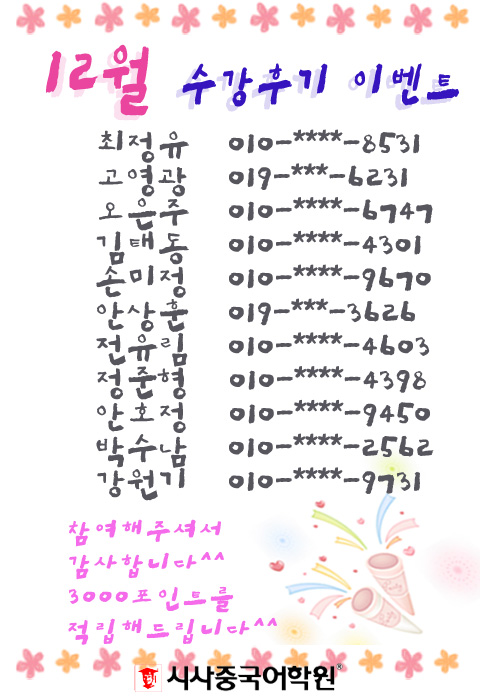 12월 수강후기 이벤트
최정유 010-****-8531
고영광 019-***-6231
오은주 010-****-6747
김태동 010-****-4301
손미정 010-****-9670
안상훈 019-***-3626
전유림 010-****-4603
정준형 010-****-4398
안호정 010-****-9450
박수남 010-****-2562
강원기 010-****-9731
참여해주셔서
감사합니다^^
3000포인트를
적립해드립니다^^
시사중국어학원®